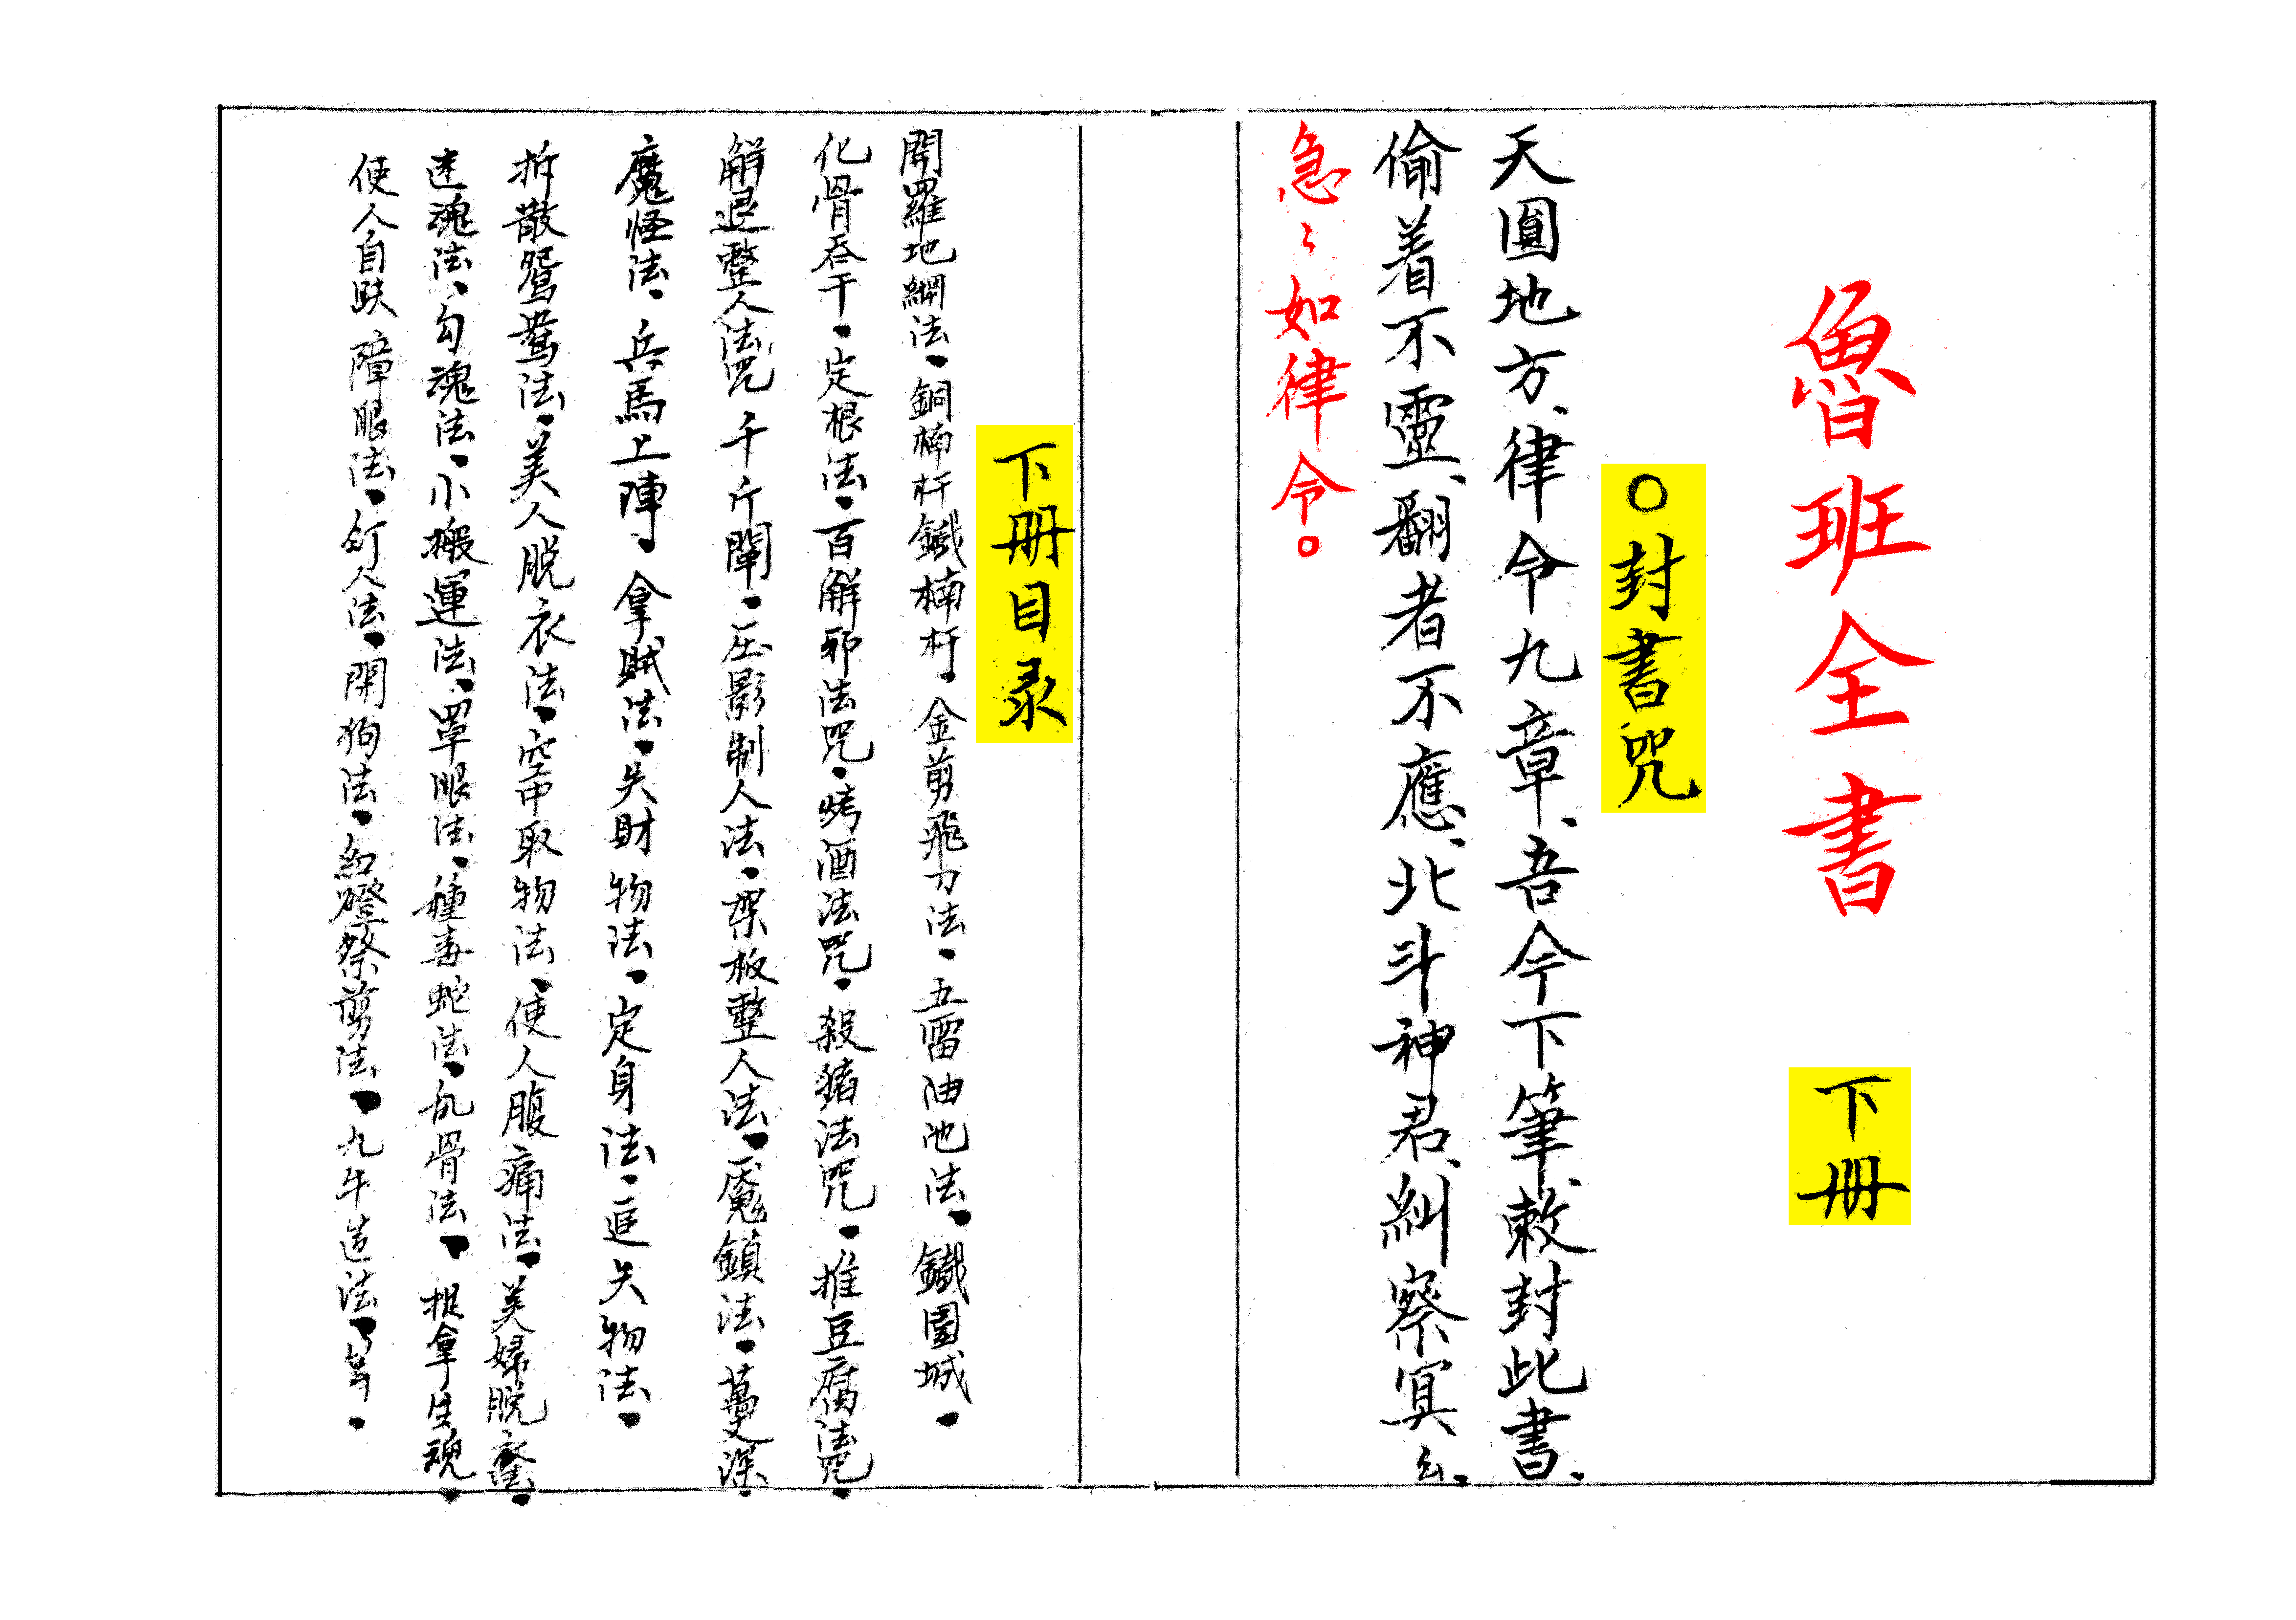 魯班全書　下冊
○封書咒
天圓地方、律令九章、吾今下筆、敕封此書、
偷着不靈、翻者不應、北斗神君、糾察冥幺、
急〻如律令。
下冊目录
開羅地網法・銅楠杆鐵楠杆・金剪飛刀法・五雷油池法・鐵圍城・
化骨吞干・定根法・百觧邪法咒・烤酒法咒・殺猪法咒・推豆腐法咒・
觧退整人法咒 千斤闡・压影制人法・架板整人法・魘鎮法・
魔怪法・兵馬上陣・拿賊法・失財物法・定身法・追失物法・
拆散鴛鴦法・美人脱衣法・空中取物法・使人腹痛法・美婦脱
迷魂法・勾魂法・小搬運法・罩眼法・種毒蛇法・乱骨法・捉拿生魂・
使人自跌 障眼法・釘人法・開狗法・紅磴祭剪法・九牛造法・等・